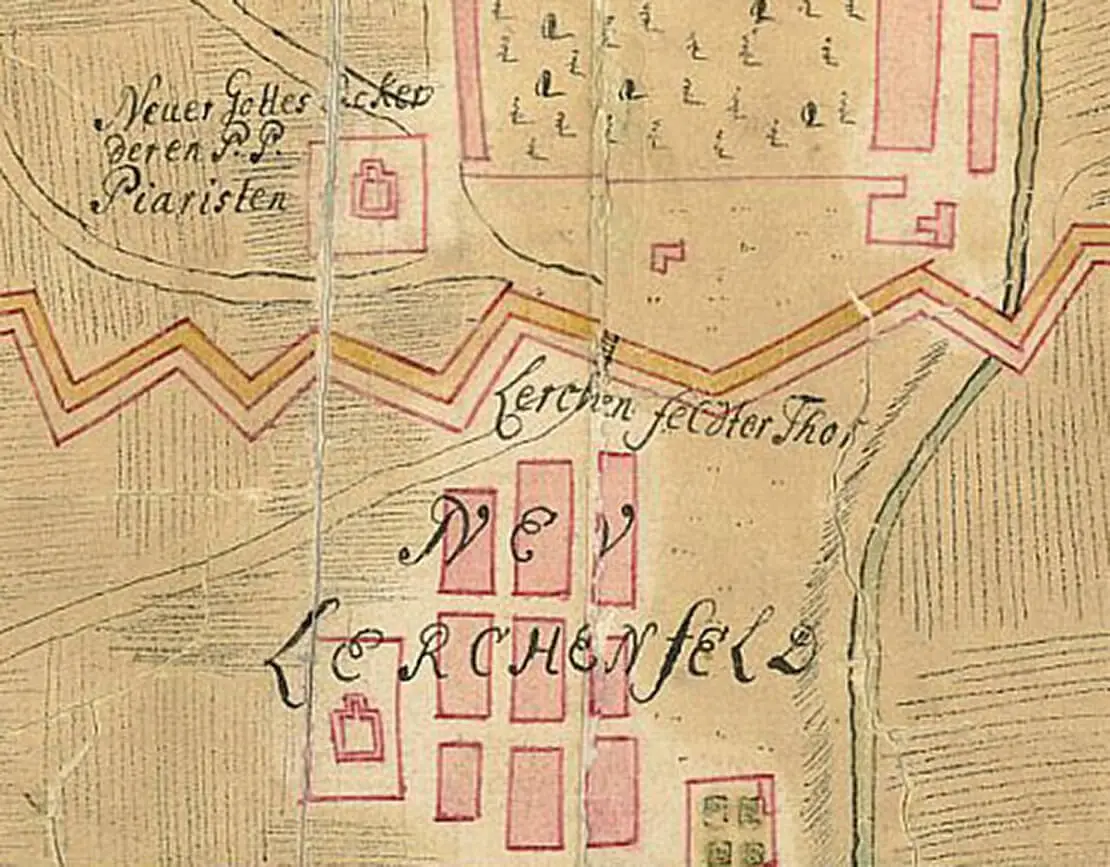 Neuer Gottes Acker
deren P. P.
Piaristen
Lerchen feldter Thor
NEV
LERCHENfELD